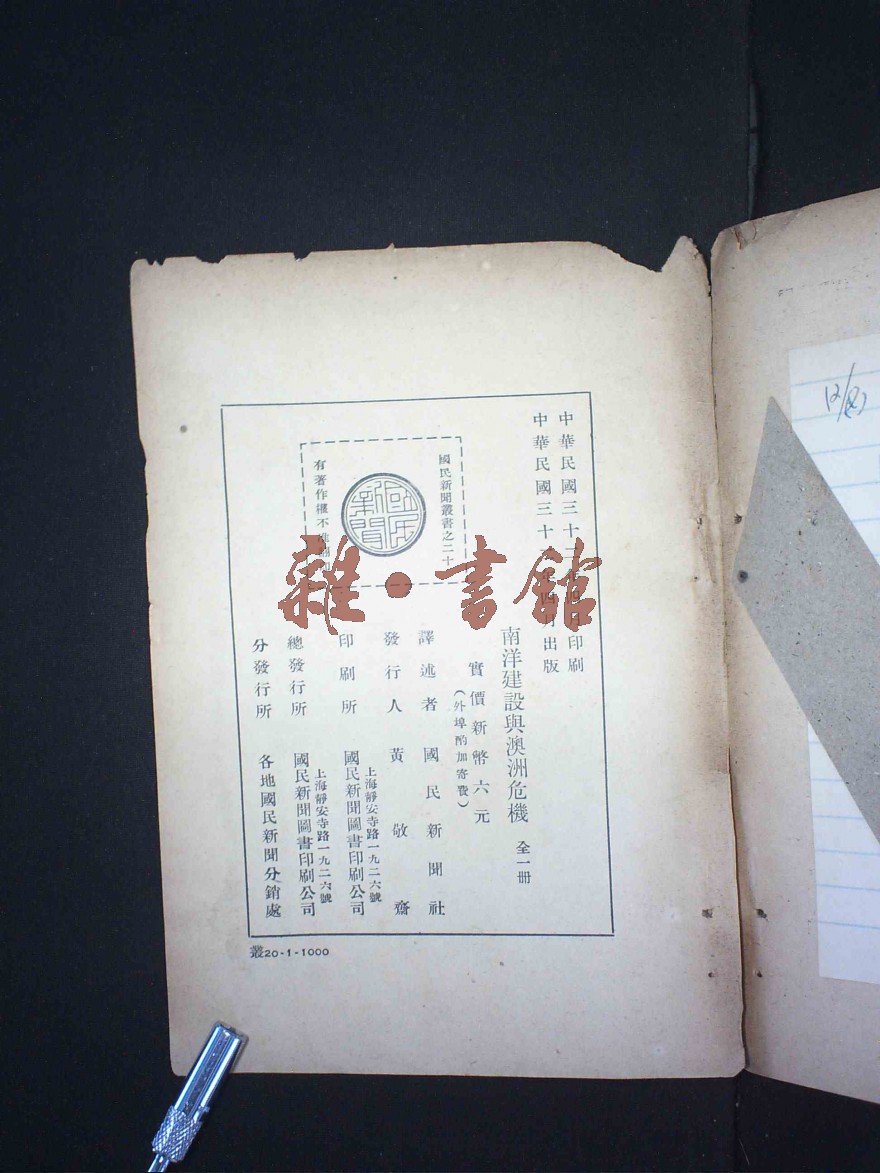 中華民國三十二 四月印刷
中華民國三十 年四月出版
南洋建設與澳洲危機 全一册
實價新幣六元
(外埠酌加寄費)
譯述者 國民新聞社
發行人 黃敬齋
印刷所 國民新聞圖書印刷公司
上海靜安寺路一九二六號
總發行所 國民新聞圖書印刷公司
上海靜安寺路一九二六號
分發行所 各地國民新聞分銷處
國民新聞叢書之二十
國民新聞
有著作權不准翻印
叢20-1-1000
雜·書館
12/